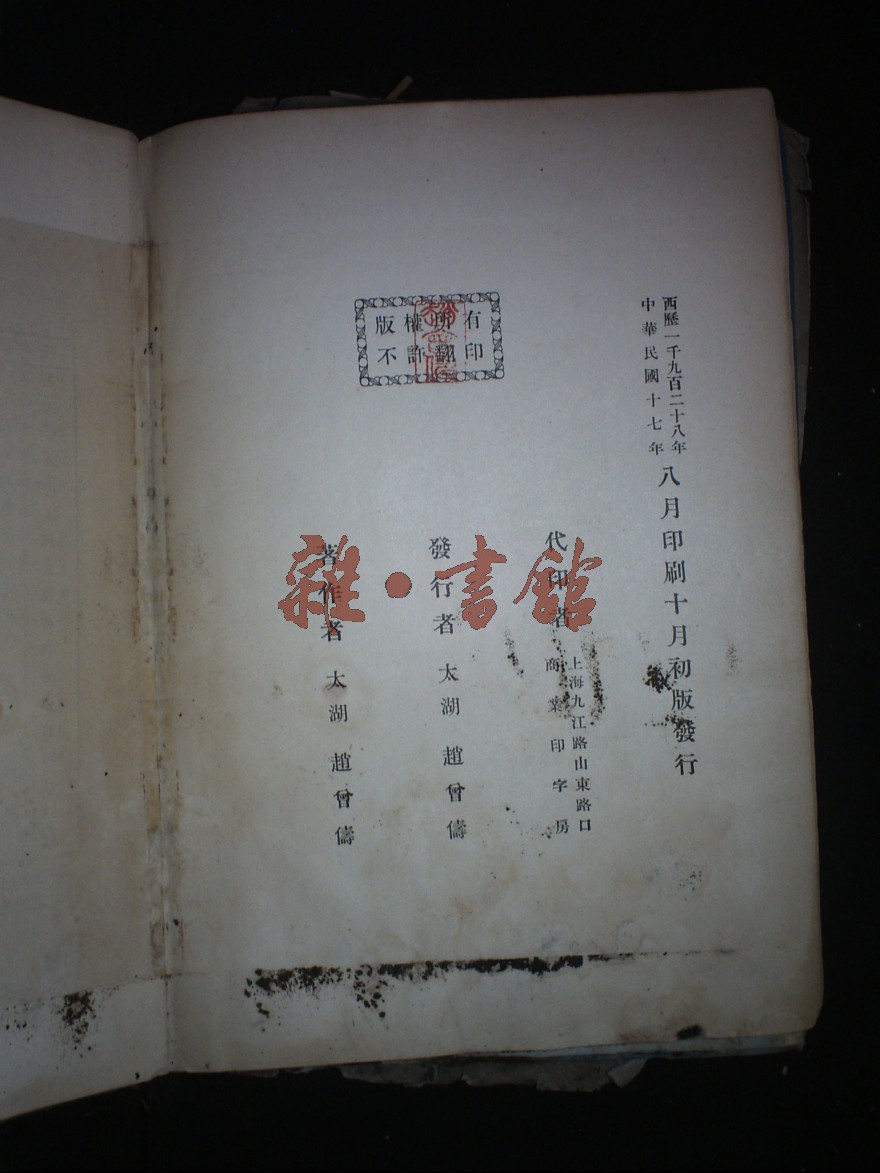 西歷一千九百二十八年
中華民國十七年
八月印刷十月初版發行
代印者
上海九江路山東路口
商業印字房
發行者 太湖 趙曾儔
著作者 太湖 趙曾儔
版權所有
不許翻印
雜·書館